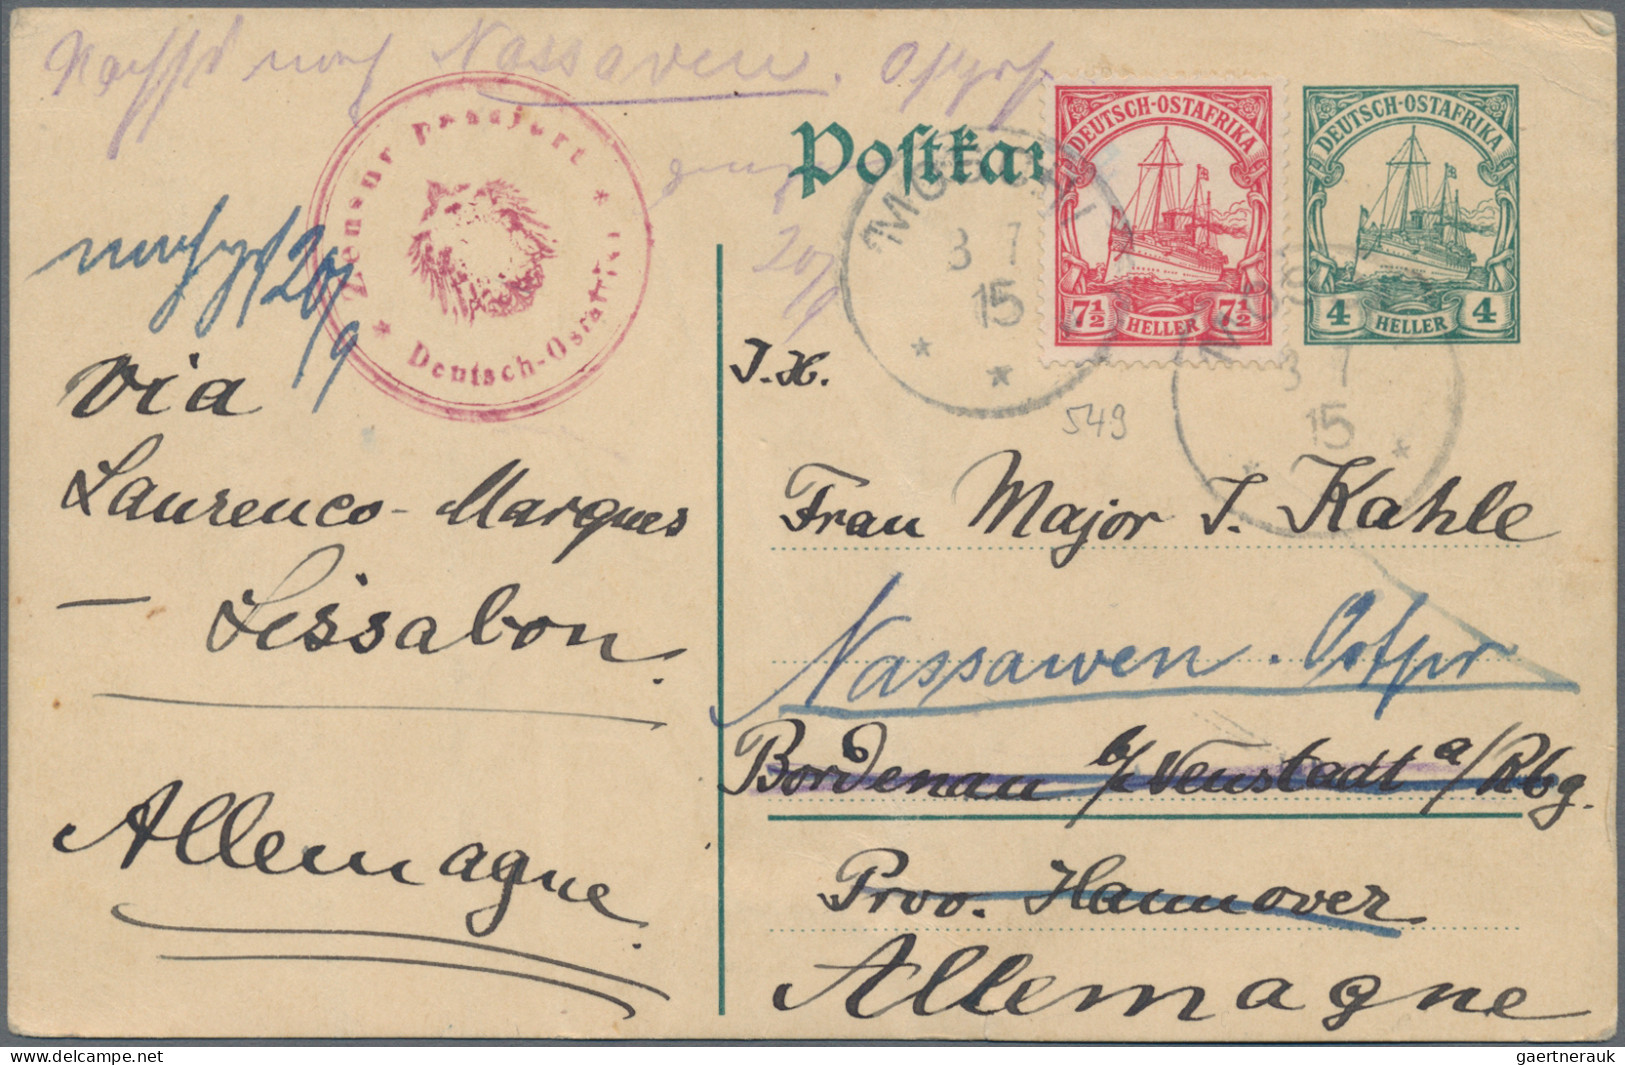 nach Nassawen. Ostpr
Postkar
DEUTSCH-OSTAFRIKA
7½ HELLER 7½
DEUTSCH-OSTAFRIKA
4 HELLER 4
MOSCHI
3 7
15
* *
MOS
3 7
15
* *
Zensur passiert
* Deutsch-Ostafrika *
20/9
20/9
J. H.
549
via
Laurenco-Marques
– Lissabon.
Allemagne.
Frau Major J. Kahle
Nassawen. Ostpr
Bordenau b/ Neustadt a/Rbg.
Prov. Hannover
Allemagne
delcampe.net
gaertnerauk